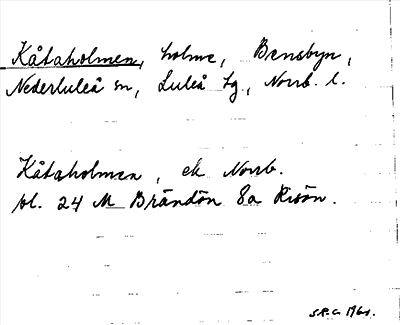 Kåtaholmen, holme, Bensbyn,
Nederluleå sn, Luleå tg., Norrb. l.
Kåtaholmen, ek Norrb.
bl. 24 M Brändön 8a Risön.
S.R.G. 1961.